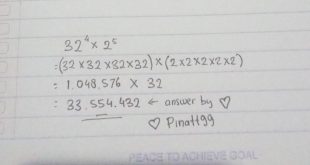 32⁴ x 2⁵
:(32 x 32 x 32 x 32) x (2x2x2x2x2)
: 1.048.576 x 32
: 33.554.432 ← answer by ♡
♡ Pinat199
PEACE TO ACHIEVE GOAL